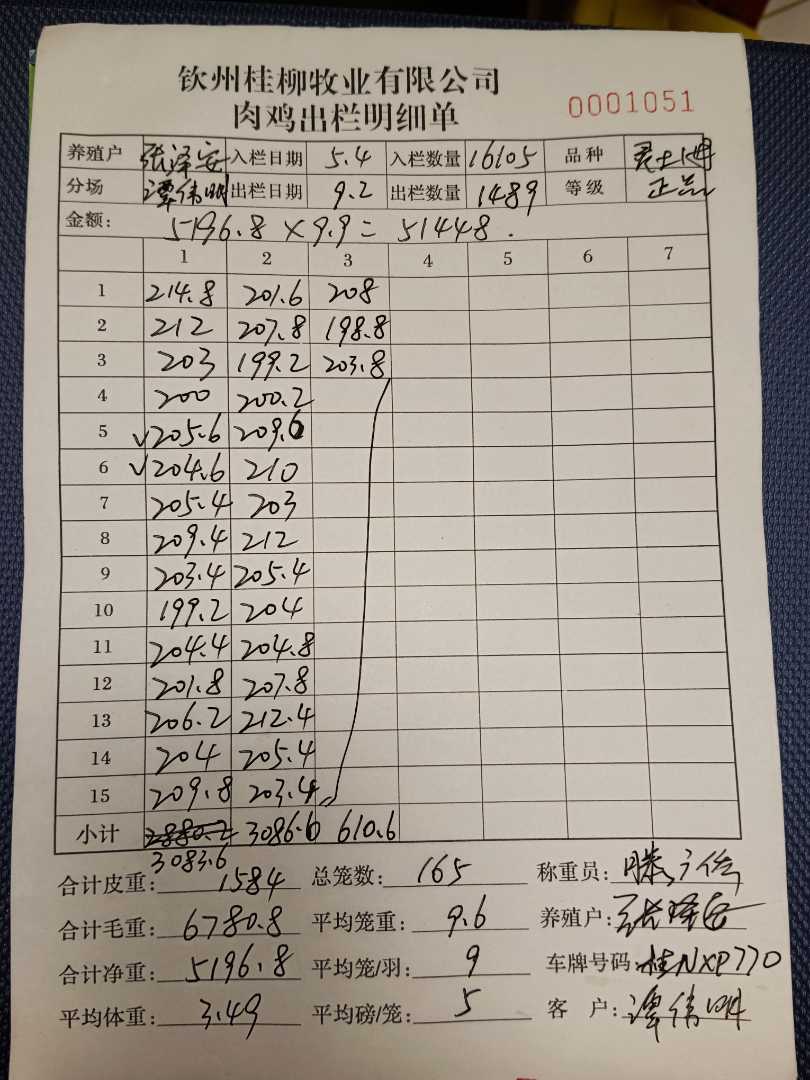 钦州桂柳牧业有限公司
肉鸡出栏明细单
0001051
养殖户 张泽安 入栏日期 5.4 入栏数量 16105 品种
分场 谭伟明 出栏日期 9.2 出栏数量 1489 等级 正品
金额: 5196.8 × 9.9 = 51448.
1 2 3 4 5 6 7
1 214.8 201.6 208
2 212 207.8 198.8
3 203 199.2 203.8
4 200 200.2
5 √205.6 209.6
6 √204.6 210
7 205.4 203
8 209.4 212
9 203.4 205.4
10 199.2 204
11 204.4 204.8
12 201.8 207.8
13 206.2 212.4
14 204 205.4
15 209.8 203.4
小计 2880.2 3086.6 610.6
3083.6
合计皮重: 1584 总笼数: 165 称重员:
合计毛重: 6780.8 平均笼重: 9.6 养殖户: 张泽安
合计净重: 5196.8 平均笼/羽: 9 车牌号码: 桂NXP770
平均体重: 3.49 平均磅/笼: 5 客 户: 谭伟明